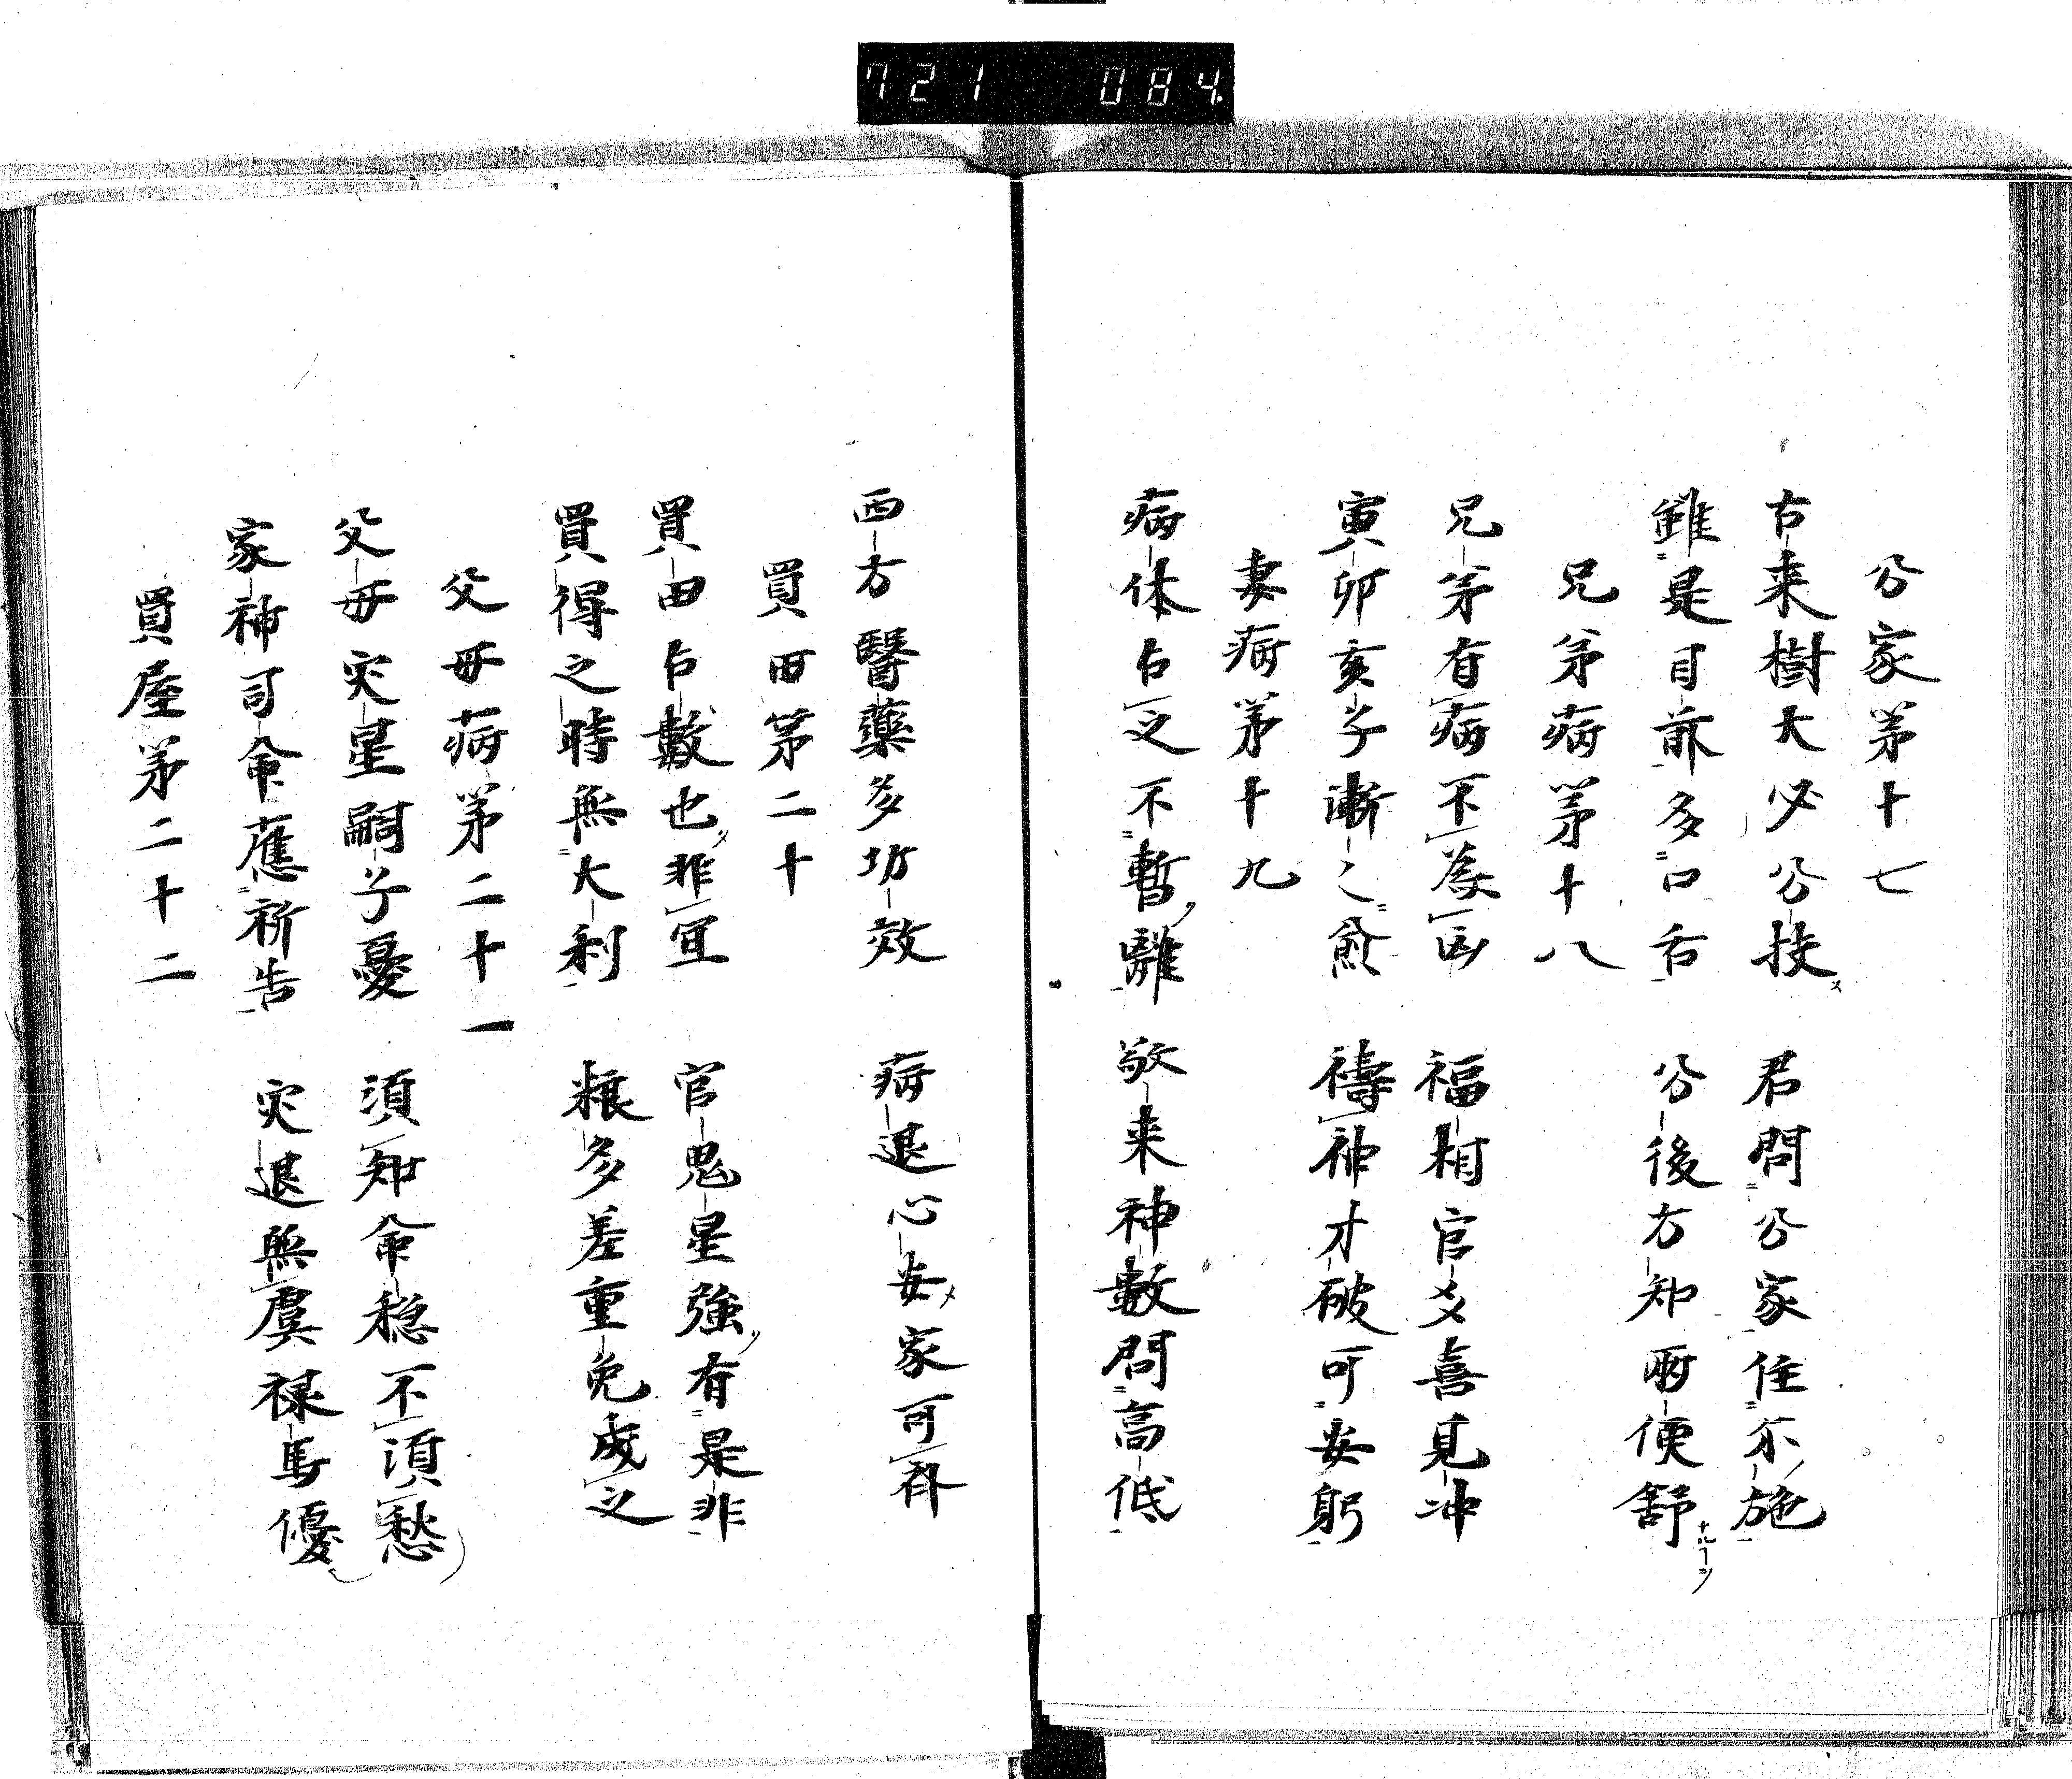 721 084
分家苐十七
古来樹大必分技 君問分家住不施
雖是目前多口舌 分後方知兩便舒
兄苐病苐十八
兄苐有病不為凶 福相官爻喜見冲
寅卯亥子漸〻愈 禱神才破可安躬
妻病苐十九
病体占之不暫離 敬来神數問高低
西方醫藥多功效 病退心安家可齊
買田第二十
買田占數也非宜 官鬼星強有是非
買得之時無大利 粮多差重免成之
父母病苐二十一
父母灾星嗣子憂 須知命穏不須愁
家神司命應祈告 灾退無虞禄馬優
買屋苐二十二